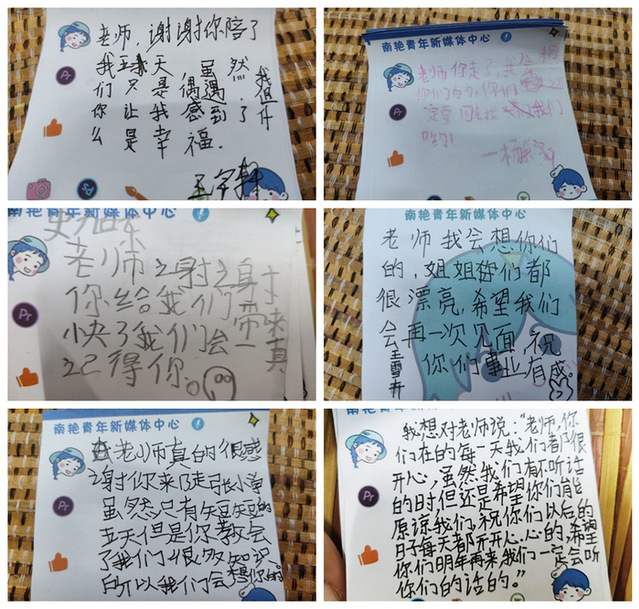 老师,谢谢你陪了
我五天,虽然
们只是偶遇,
我但
你让我感到了什
么是幸福.
南艳青年新媒体中心
老师你走了,我会想
你们的,你们
一定要回来找我们
哟!
南艳青年新媒体中心
老师谢谢
你给我们带来
快了我们会一真
记得你。
Pr
南艳青年新媒体中心
老师我会想你们
的,姐姐们都
很漂亮,希望我们
会再一次见面,祝
你们事业有成。
南艳青年新媒体中心
老师真的很感
谢你来陪
虽然只有短短的
五天但是你教会
了我们很多知识
所以我们会想你的
Pr
我想对老师说:“老师,你
们在的每一天我们都很
开心,虽然我们有不听话
的时,但还是希望你们能
原谅我们,祝你们以后的
日子每天都开开心心的,希望
你们明年再来,我们一定会听
你们的话的。”
Pr